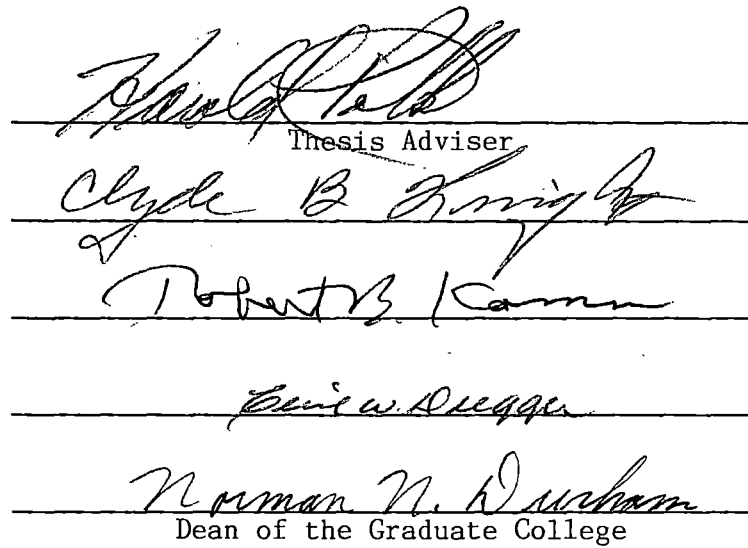 Harold Polk
Thesis Adviser
Clyde B Knight
Robert B. Kamm
Cecil W. Dugger
Norman N. Durham
Dean of the Graduate College